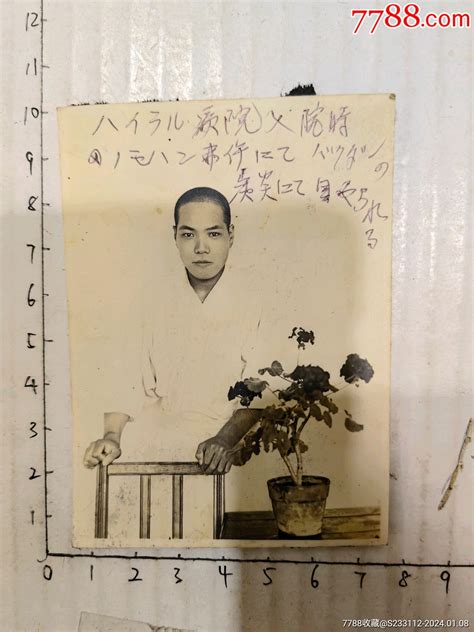 7788.com
ハイラル病院入院時
ノモハン事件にて バクダンの
炎にて 目やられる
12
11
10
9
8
7
6
5
4
3
2
1
0 1 2 3 4 5 6 7 8 9
7788收藏@S233112-2024.01.08